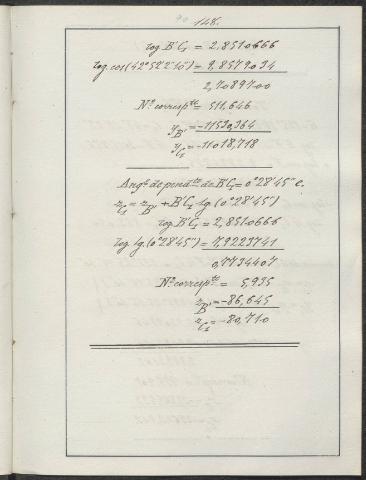 148.
log. B'C₁ = 2,8510666
log. cos (42°52'2"10''') = 9,8579034
2,7089700
N.º corresp.te = 511,646
y_B' = -11530,364
y_C₁ = -11018,718
Ang.º de pend.te de B'C₁ = 0°28'45" c.
z_C₁ = z_B' + B'C₁ tg. (0°28'45")
log. B'C₁ = 2,8510666
log. tg. (0°28'45") = 7,9223741
0,7734407
N.º corresp.te = 5,935
z_B' = -86,645
z_C₁ = -80,710